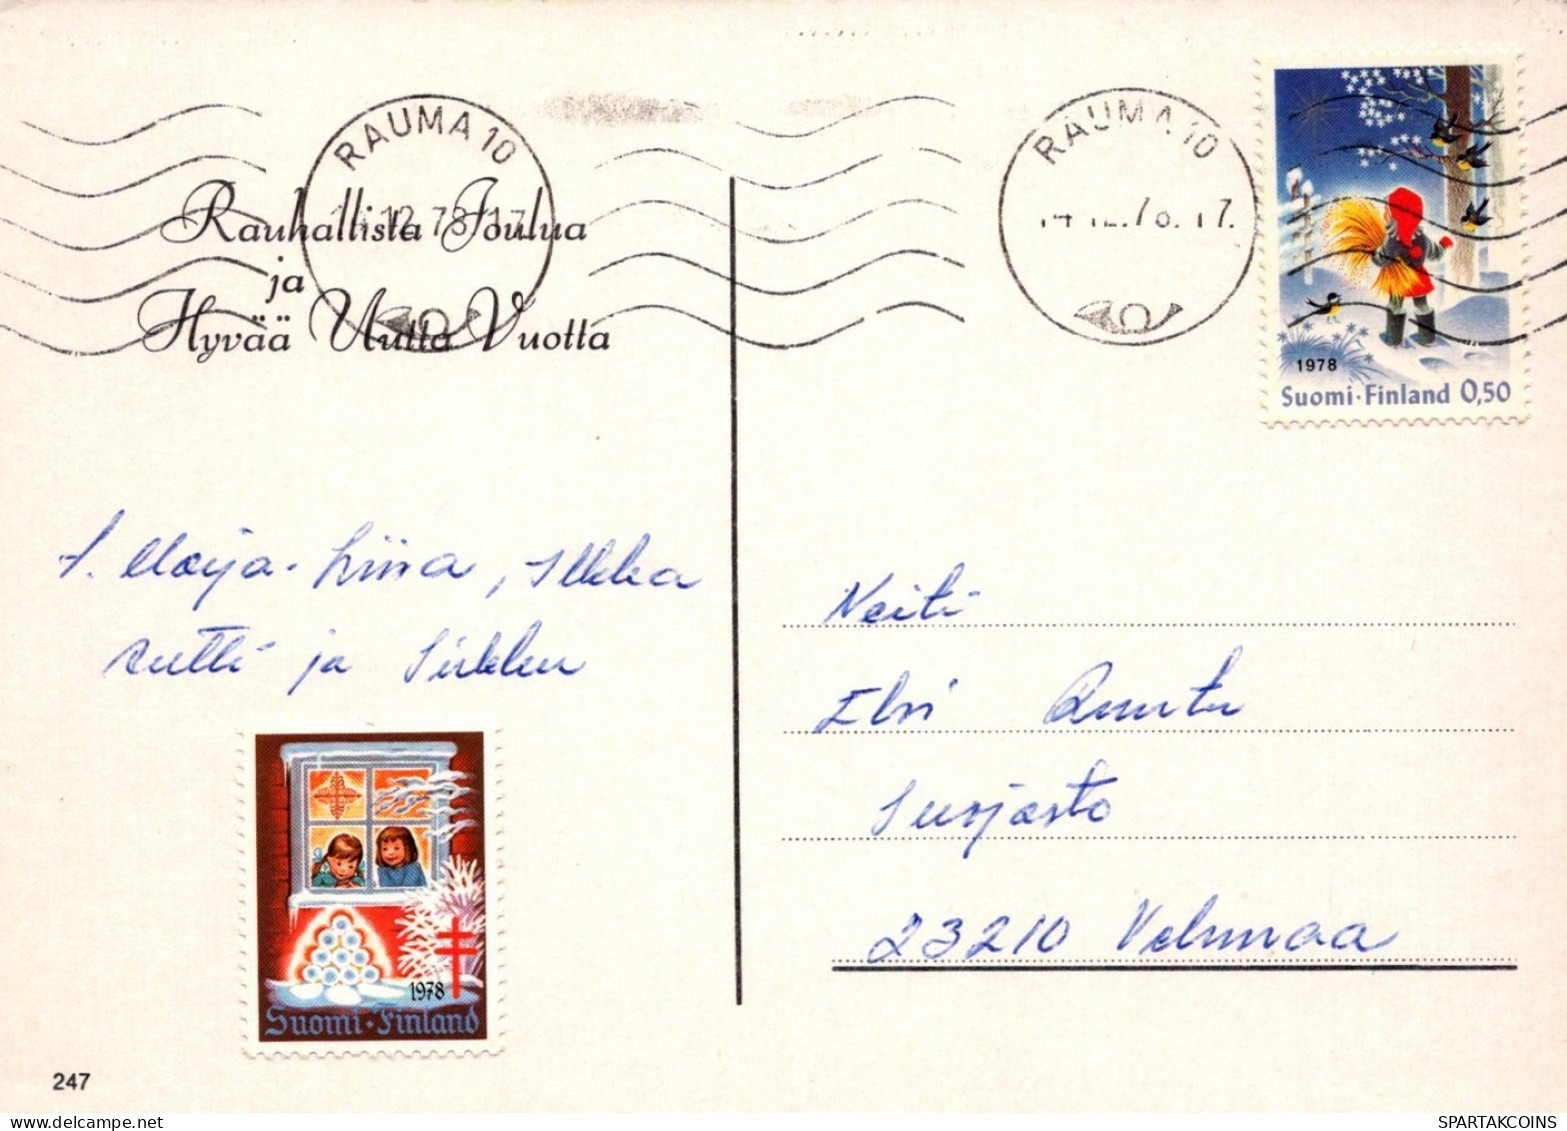 RAUMA 10
14.12.78.17
Rauhallista Joulua
ja
Hyvää Uutta Vuotta
RAUMA 10
14.12.78.17.
1978
Suomi·Finland 0,50
t. Marja-Liisa, Ilkka
ja Sirkku
Neiti
Elvi
Suojasto
23210 Vehmaa
1978
Suomi·Finland
247
SPARTAKCOINS